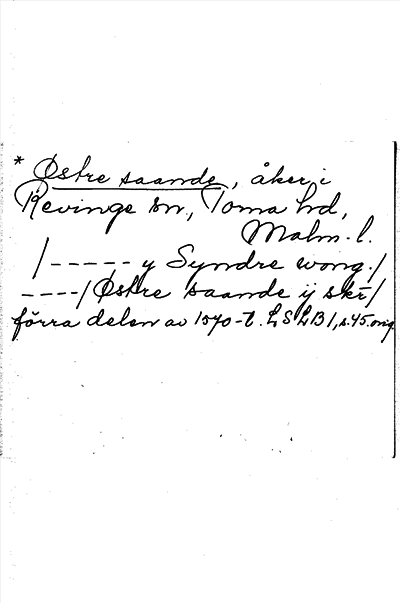 * Østre saande, åker i
Revinge sn, Torna hd,
Malm. l.
/ ----- y Syndre wong. /
---- / Østre saande ij skr /
förra delen av 1570-t. LSLB 1, s. 45. orig.